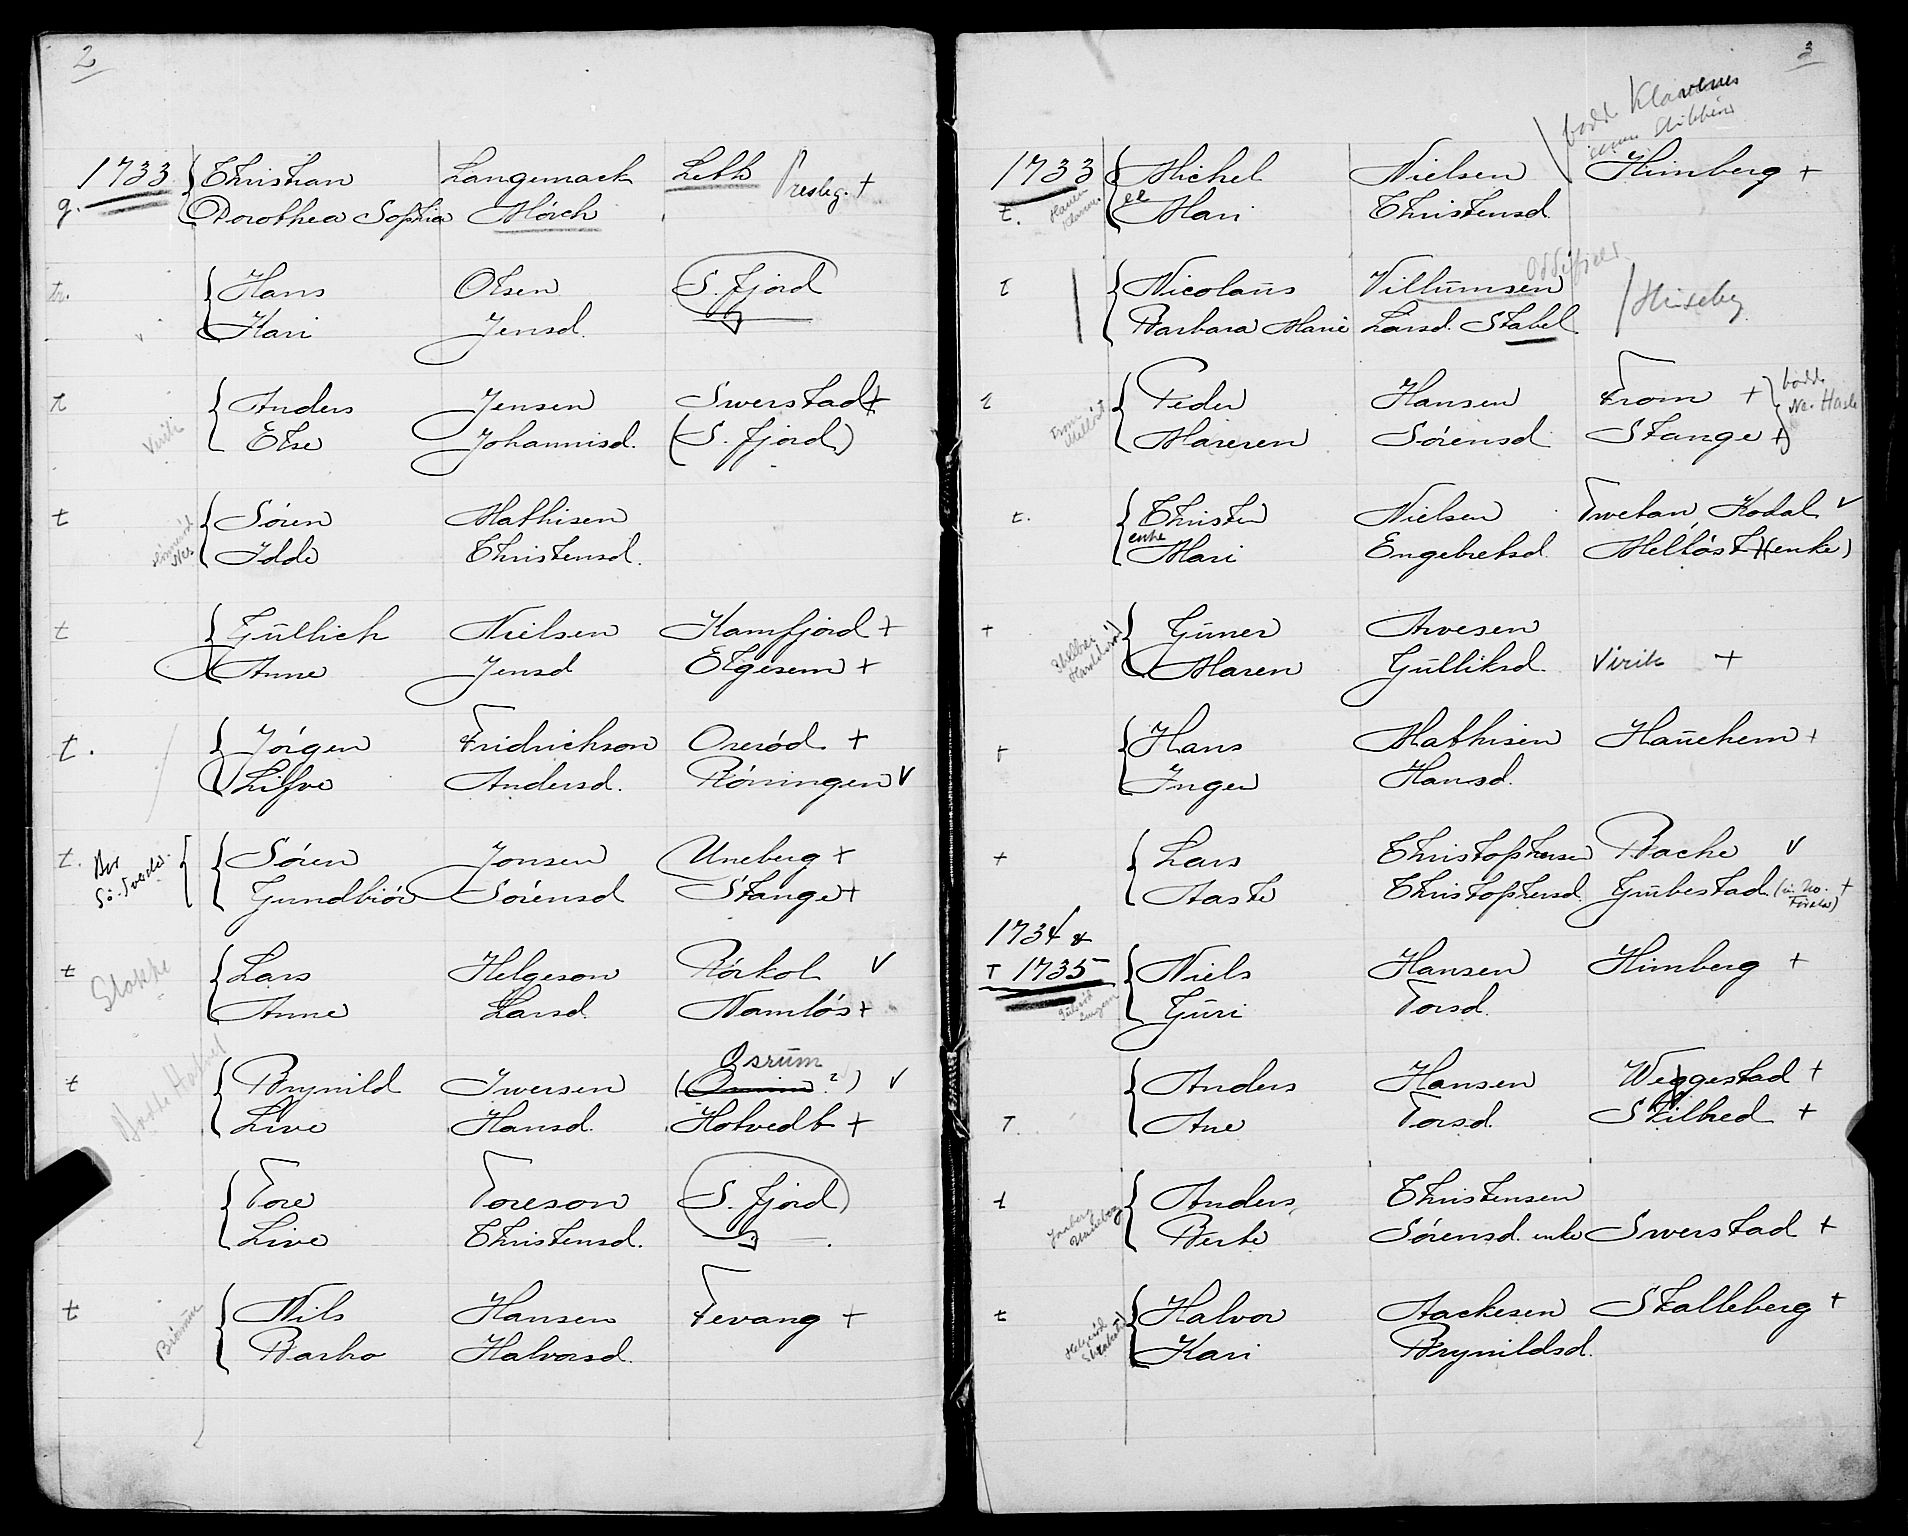 2
1733 Christian Langemach Leth Presteg. +
g. Dorothea Sophia Mörch
tr. Hans Olsen S. fjord
Kari Jensd
t Anders Jensen Swerstad +
Virik Else Johannisd. (S. fjord)
t Sören Mathisen
Idde Christensd.
t Gullich Nielsen Kamfjord +
Anne Jensd Elgesem +
t. Jörgen Fridrichson Oseröd +
Lisve Andersd. Röningen V
t. Sören Jonsen Uneberg +
Gundbiör Sörensd Stange +
t Stokke Lars Helgeson Rörkol V
Anne Larsd Namlös +
Osrum
t Brynild Iversen ( ?) V
Live Hansd. Hotvedt +
Tore Toreson S. fjord
Live Christensd.
t Nils Hansen Fevang +
Barbo Halvorsd.
3
bodde Klavenes
1733 Michel Nielsen Himberg +
t. Mari Christensd.
t Nicolaus Villumsen Huseby
Barbara Marie Larsd. Stabel
bodde
t Peder Hansen From + Ne. Hasle
Maren Sörensd Stange +
t. Christen Nielsen Tvetan Kodal V
enke
Mari Engebretsd. Mellöst (enke)
+ Guner Arvesen
Maren Gulliksd. Virik +
+ Hans Mathisen Hauchem +
Inger Hansd.
+ Lars Christophersen Backe V
Aaste Christophersd. Grubestad +
1734 &
T 1735 Niels Hansen Himberg +
Guri Torsd.
Anders Hansen Weggestad +
T. Ane Torsd. Skilbred +
t Anders Christensen
Berte Sörensd. enke Swerstad +
t Halvor Aackesen Skalleberg +
Kari Brynildsd.